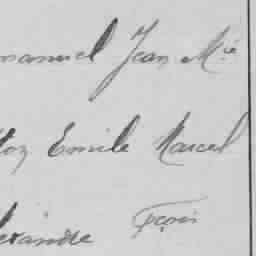 manuel Jean Mie
Emile Marcel
exandre Fçois